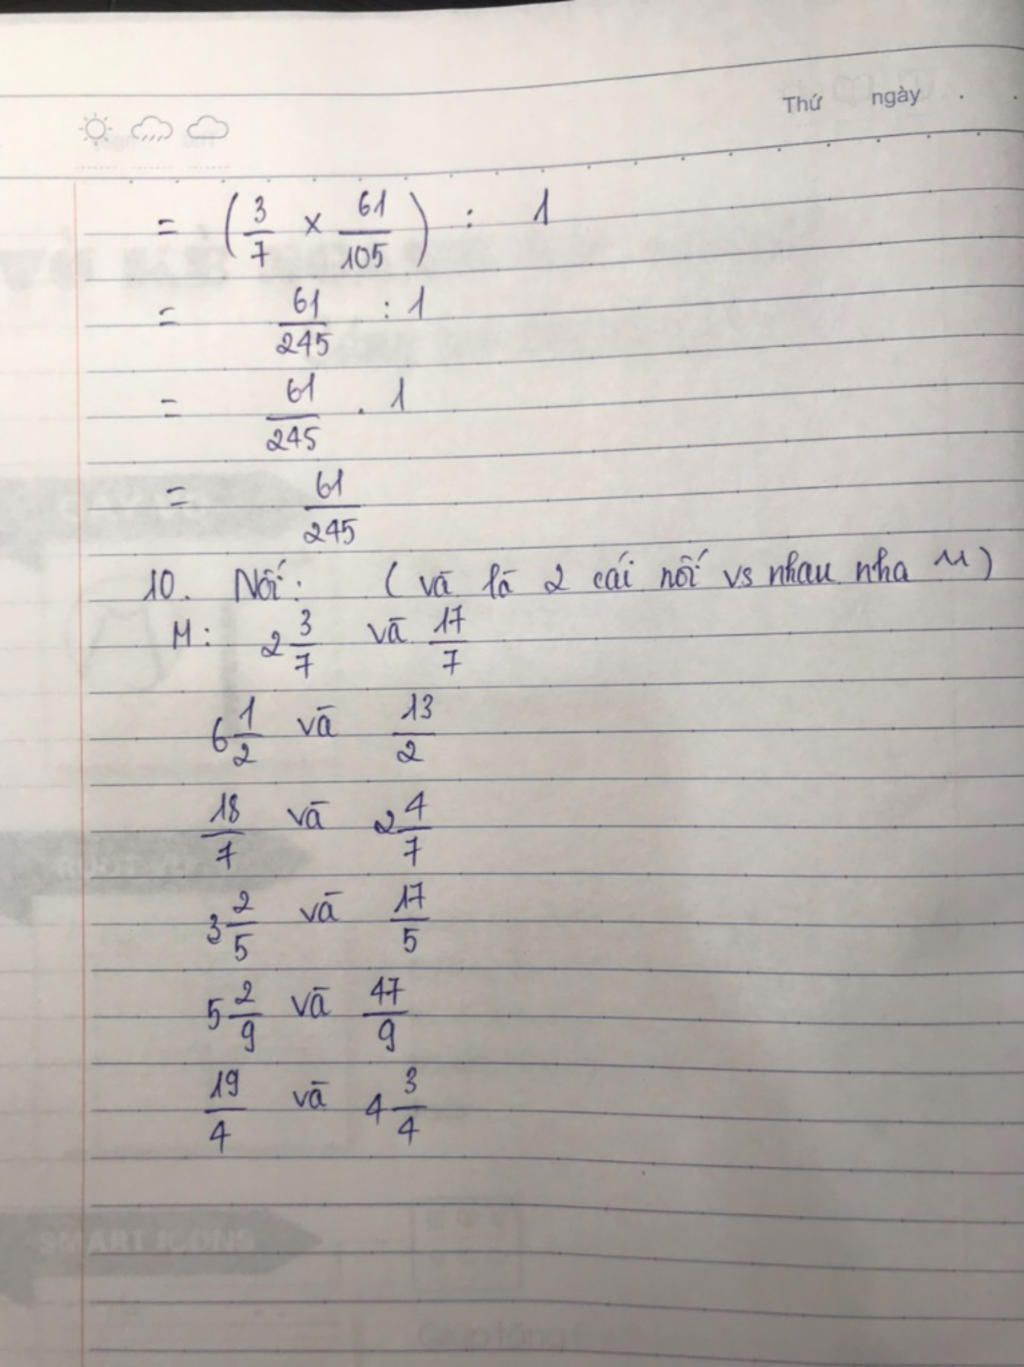 Thứ ngày .
= (3/7 × 61/105) : 1
= 61/245 : 1
= 61/245 . 1
= 61/245
10. Nối: (và là 2 cái nối vs nhau nha M)
M: 2 3/7 và 17/7
6 1/2 và 13/2
18/7 và 2 4/7
3 2/5 và 17/5
5 2/9 và 47/9
19/4 và 4 3/4
SMART ICONS